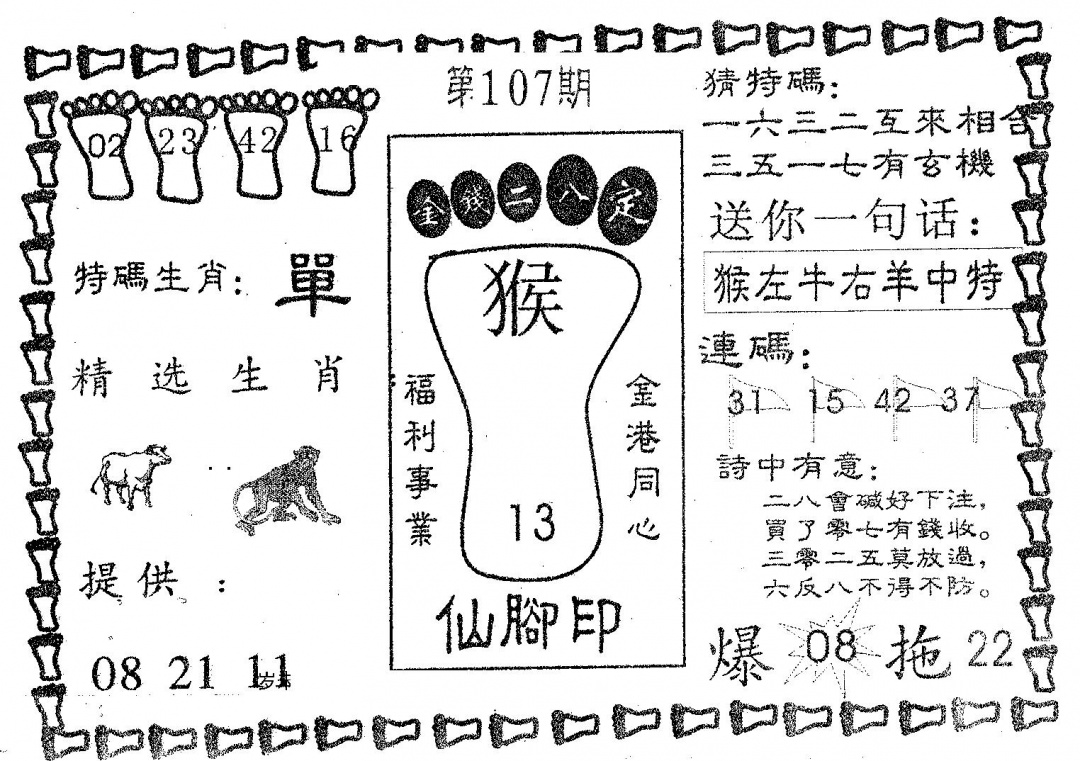 第107期
02 23 42 16
特碼生肖：單
精选生肖
提供：
08 21 11
金錢二八定
猴
福利事業
金港同心
13
仙腳印
猜特碼：
一六三二互來相合
三五一七有玄機
送你一句话：
猴左牛右羊中特
連碼：
31 15 42 37
詩中有意：
二八會碱好下注，
買了零七有錢收。
三零二五莫放過，
六反八不得不防。
爆 08 拖 22